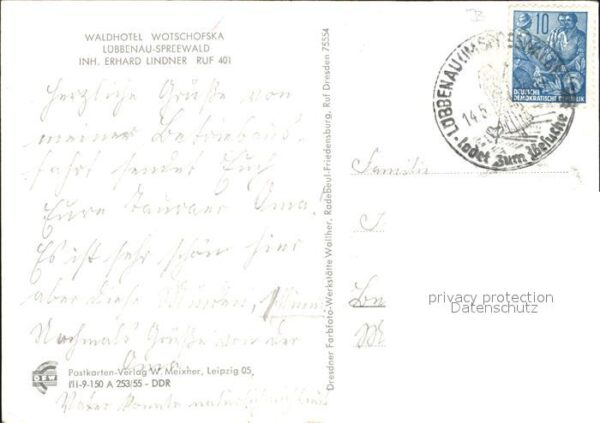 WALDHOTEL WOTSCHOFSKA
LÜBBENAU-SPREEWALD
INH. ERHARD LINDNER RUF 401
Herzliche Grüße von
meiner Betriebs-
fahrt sendet Euch
Eure Oma!
Es ist sehr schön hier
aber diese Mücken,
Nochmals Grüße von der
Oma
Postkarten-Verlag W. Meixner, Leipzig 05,
III-9-150 A 253/55 - DDR
Vater konnte
Dresdner Farbfoto-Werkstätte Walther, Radebeul-Friedensburg, Ruf Dresden 75554
10
DEUTSCHE
DEMOKRATISCHE REPUBLIK
LÜBBENAU
14.5
ladet zum Besuche
Familie
privacy protection
Datenschutz